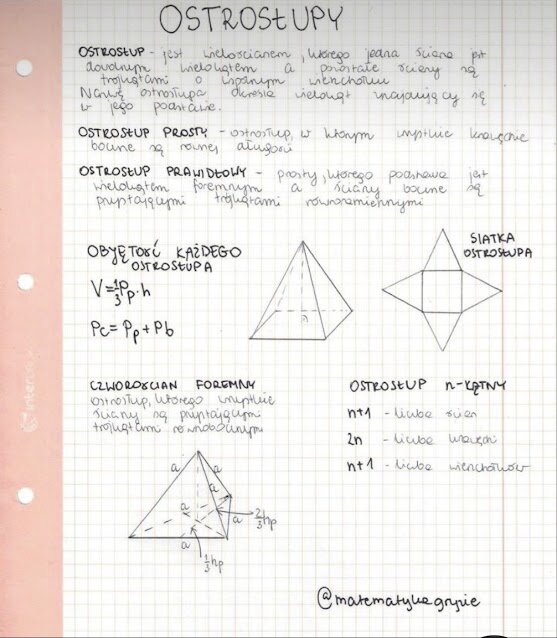 OSTROSŁUPY
OSTROSŁUP - jest wielościanem, którego jedna ściana jest
dowolnym wielokątem a pozostałe ściany są
trójkątami o wspólnym wierzchołku
Nazwę ostrosłupa określa wielokąt znajdujący się
w jego podstawie.
OSTROSŁUP PROSTY - ostrosłup, w którym wszystkie krawędzie
boczne są równej długości
OSTROSŁUP PRAWIDŁOWY - prosty, którego podstawa jest
wielokątem foremnym a ściany boczne są
przystającymi trójkątami równoramiennymi
OBJĘTOŚĆ KAŻDEGO
OSTROSŁUPA
V = 1/3 Pp · h
Pc = Pp + Pb
SIATKA
OSTROSŁUPA
CZWOROŚCIAN FOREMNY
ostrosłup, którego wszystkie
ściany są przystającymi
trójkątami równobocznymi
a
a
a
a
a
a
2/3 hp
1/3 hp
OSTROSŁUP n-KĄTNY
n+1 - liczba ścian
2n - liczba krawędzi
n+1 - liczba wierzchołków
@matematykagryzie